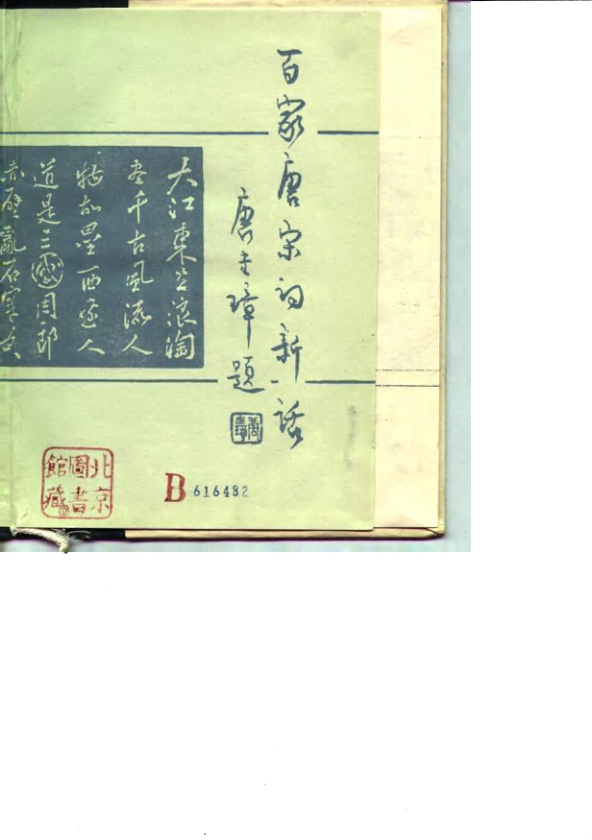 百家唐宋词新话
唐圭璋題
大江東去浪淘
尽千古風流人
物故壘西邊人
道是三國周郎
赤壁亂石穿
北京
圖書
館藏
B 616432